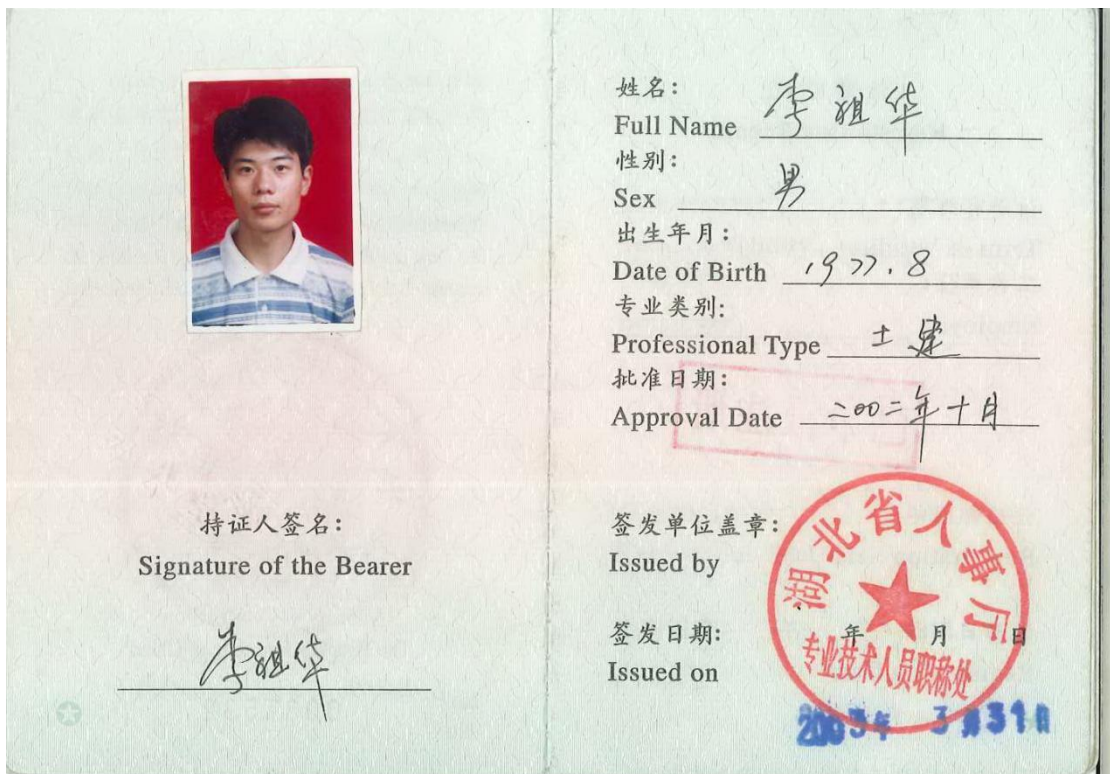 持证人签名:
Signature of the Bearer
李祖华
姓名:
Full Name 李祖华
性别:
Sex 男
出生年月:
Date of Birth 1977.8
专业类别:
Professional Type 土建
批准日期:
Approval Date 二00二年十月
签发单位盖章:
Issued by
湖北省人事厅
专业技术人员职称处
签发日期: 年 月 日
Issued on
2003年 3月31日